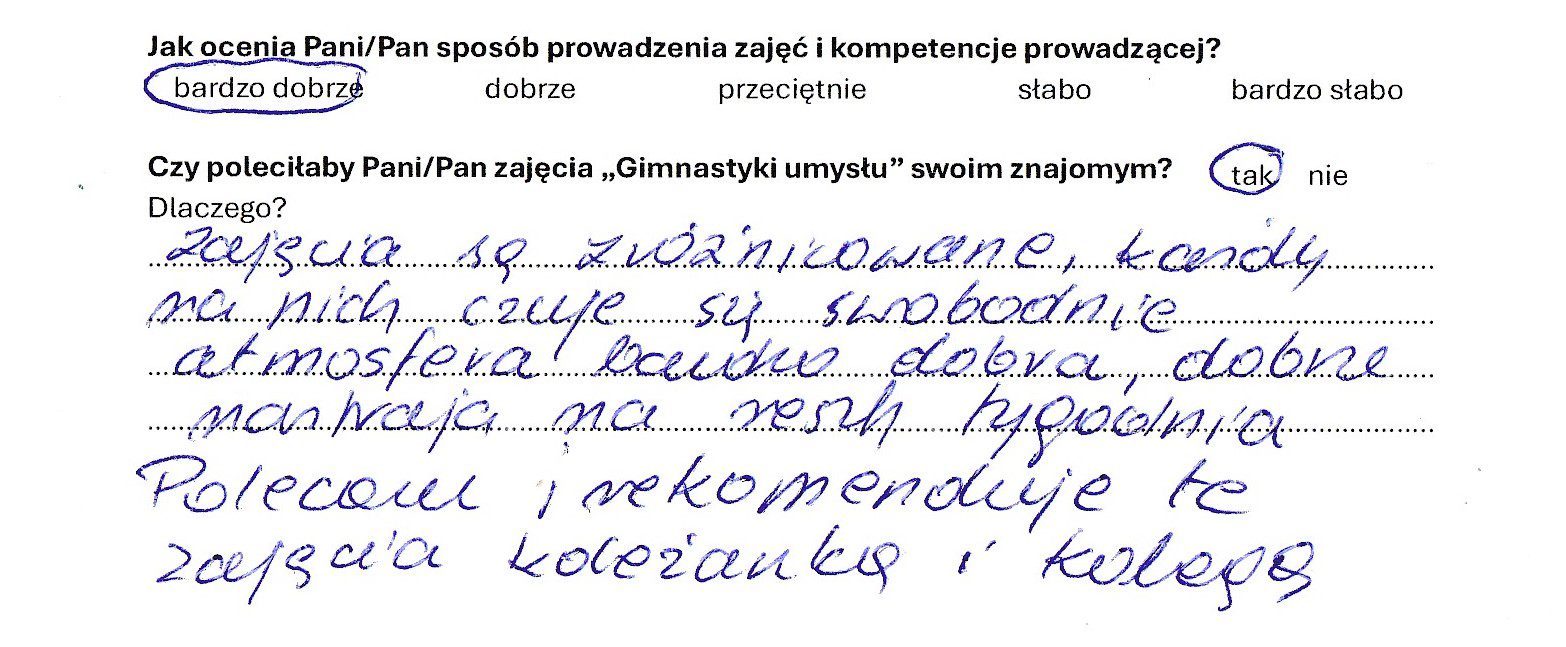 Jak ocenia Pani/Pan sposób prowadzenia zajęć i kompetencje prowadzącej?
bardzo dobrze dobrze przeciętnie słabo bardzo słabo
Czy poleciłaby Pani/Pan zajęcia „Gimnastyki umysłu” swoim znajomym? tak nie
Dlaczego?
zajęcia są zróżnicowane, każdy
na nich czuje się swobodnie
atmosfera bardzo dobra, dobrze
nastraja na reszty tygodnia
Polecam i rekomenduje te
zajęcia koleżanką i kolegą